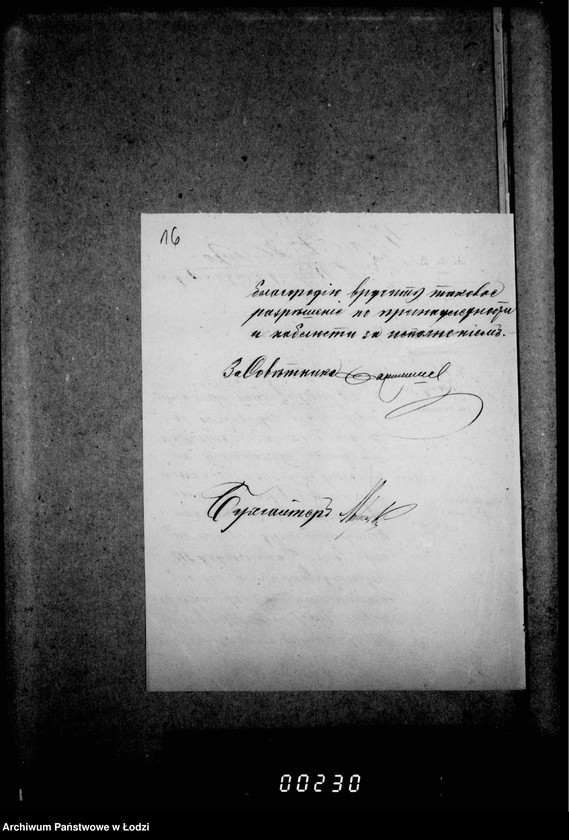 16
Благородію вручить таковое
разрѣшеніе по принадлежности
и наблюсти за исполненіемъ.
За Совѣтника
Бухгалтеръ
00230
Archiwum Państwowe w Łodzi